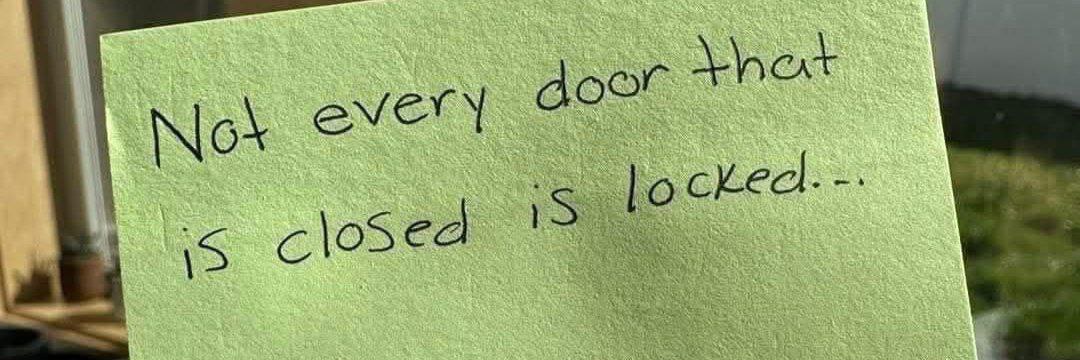 Not every door that
is closed is locked...